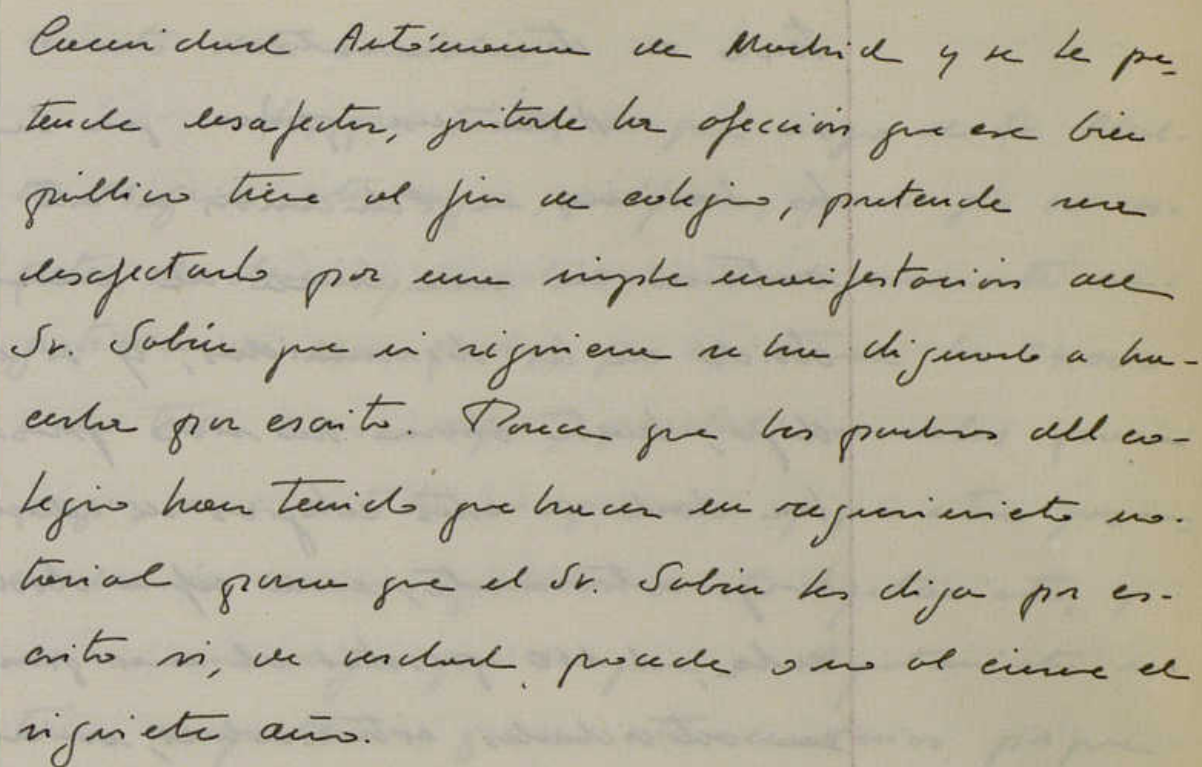 Comunidad Autónoma de Madrid y se le pre-
tende desafectar, quitarle la afección que ese bien
público tiene al fin de colegio, pretende ser
desafectado por una simple manifestación del
Sr. Sabín que ni siquiera se ha dignado a ha-
cerla por escrito Parece que los padres del co-
legio han tenido que hacer un requerimiento no-
tarial para que el Sr. Sabín les diga por es-
crito si, de verdad procede o no al cierre el
siguiente año.